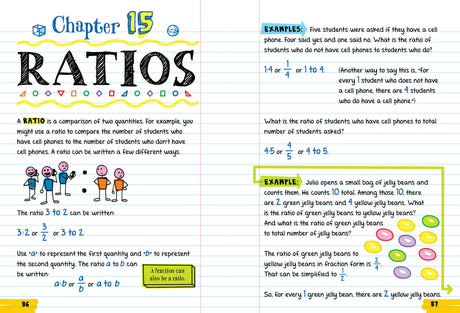 Chapter 15
RATIOS
A RATIO is a comparison of two quantities. For example, you
might use a ratio to compare the number of students who
have cell phones to the number of students who don't have
cell phones. A ratio can be written a few different ways.
The ratio 3 to 2 can be written:
3:2 or 3/2 or 3 to 2
Use "a" to represent the first quantity and "b" to represent
the second quantity. The ratio a to b can
be written:
a:b or a/b or a to b
A fraction can
also be a ratio.
86
EXAMPLES: Five students were asked if they have a cell
phone. Four said yes and one said no. What is the ratio of
students who do not have cell phones to students who do?
1:4 or 1/4 or 1 to 4.
(Another way to say this is, "For
every 1 student who does not have
a cell phone, there are 4 students
who do have a cell phone.")
What is the ratio of students who have cell phones to total
number of students asked?
4:5 or 4/5 or 4 to 5.
EXAMPLE: Julio opens a small bag of jelly beans and
counts them. He counts 10 total. Among those 10, there
are 2 green jelly beans and 4 yellow jelly beans. What
is the ratio of green jelly beans to yellow jelly beans?
And what is the ratio of green jelly beans
to total number of jelly beans?
The ratio of green jelly beans to
yellow jelly beans in fraction form is 2/4.
That can be simplified to 1/2.
So, for every 1 green jelly bean, there are 2 yellow jelly beans.
87